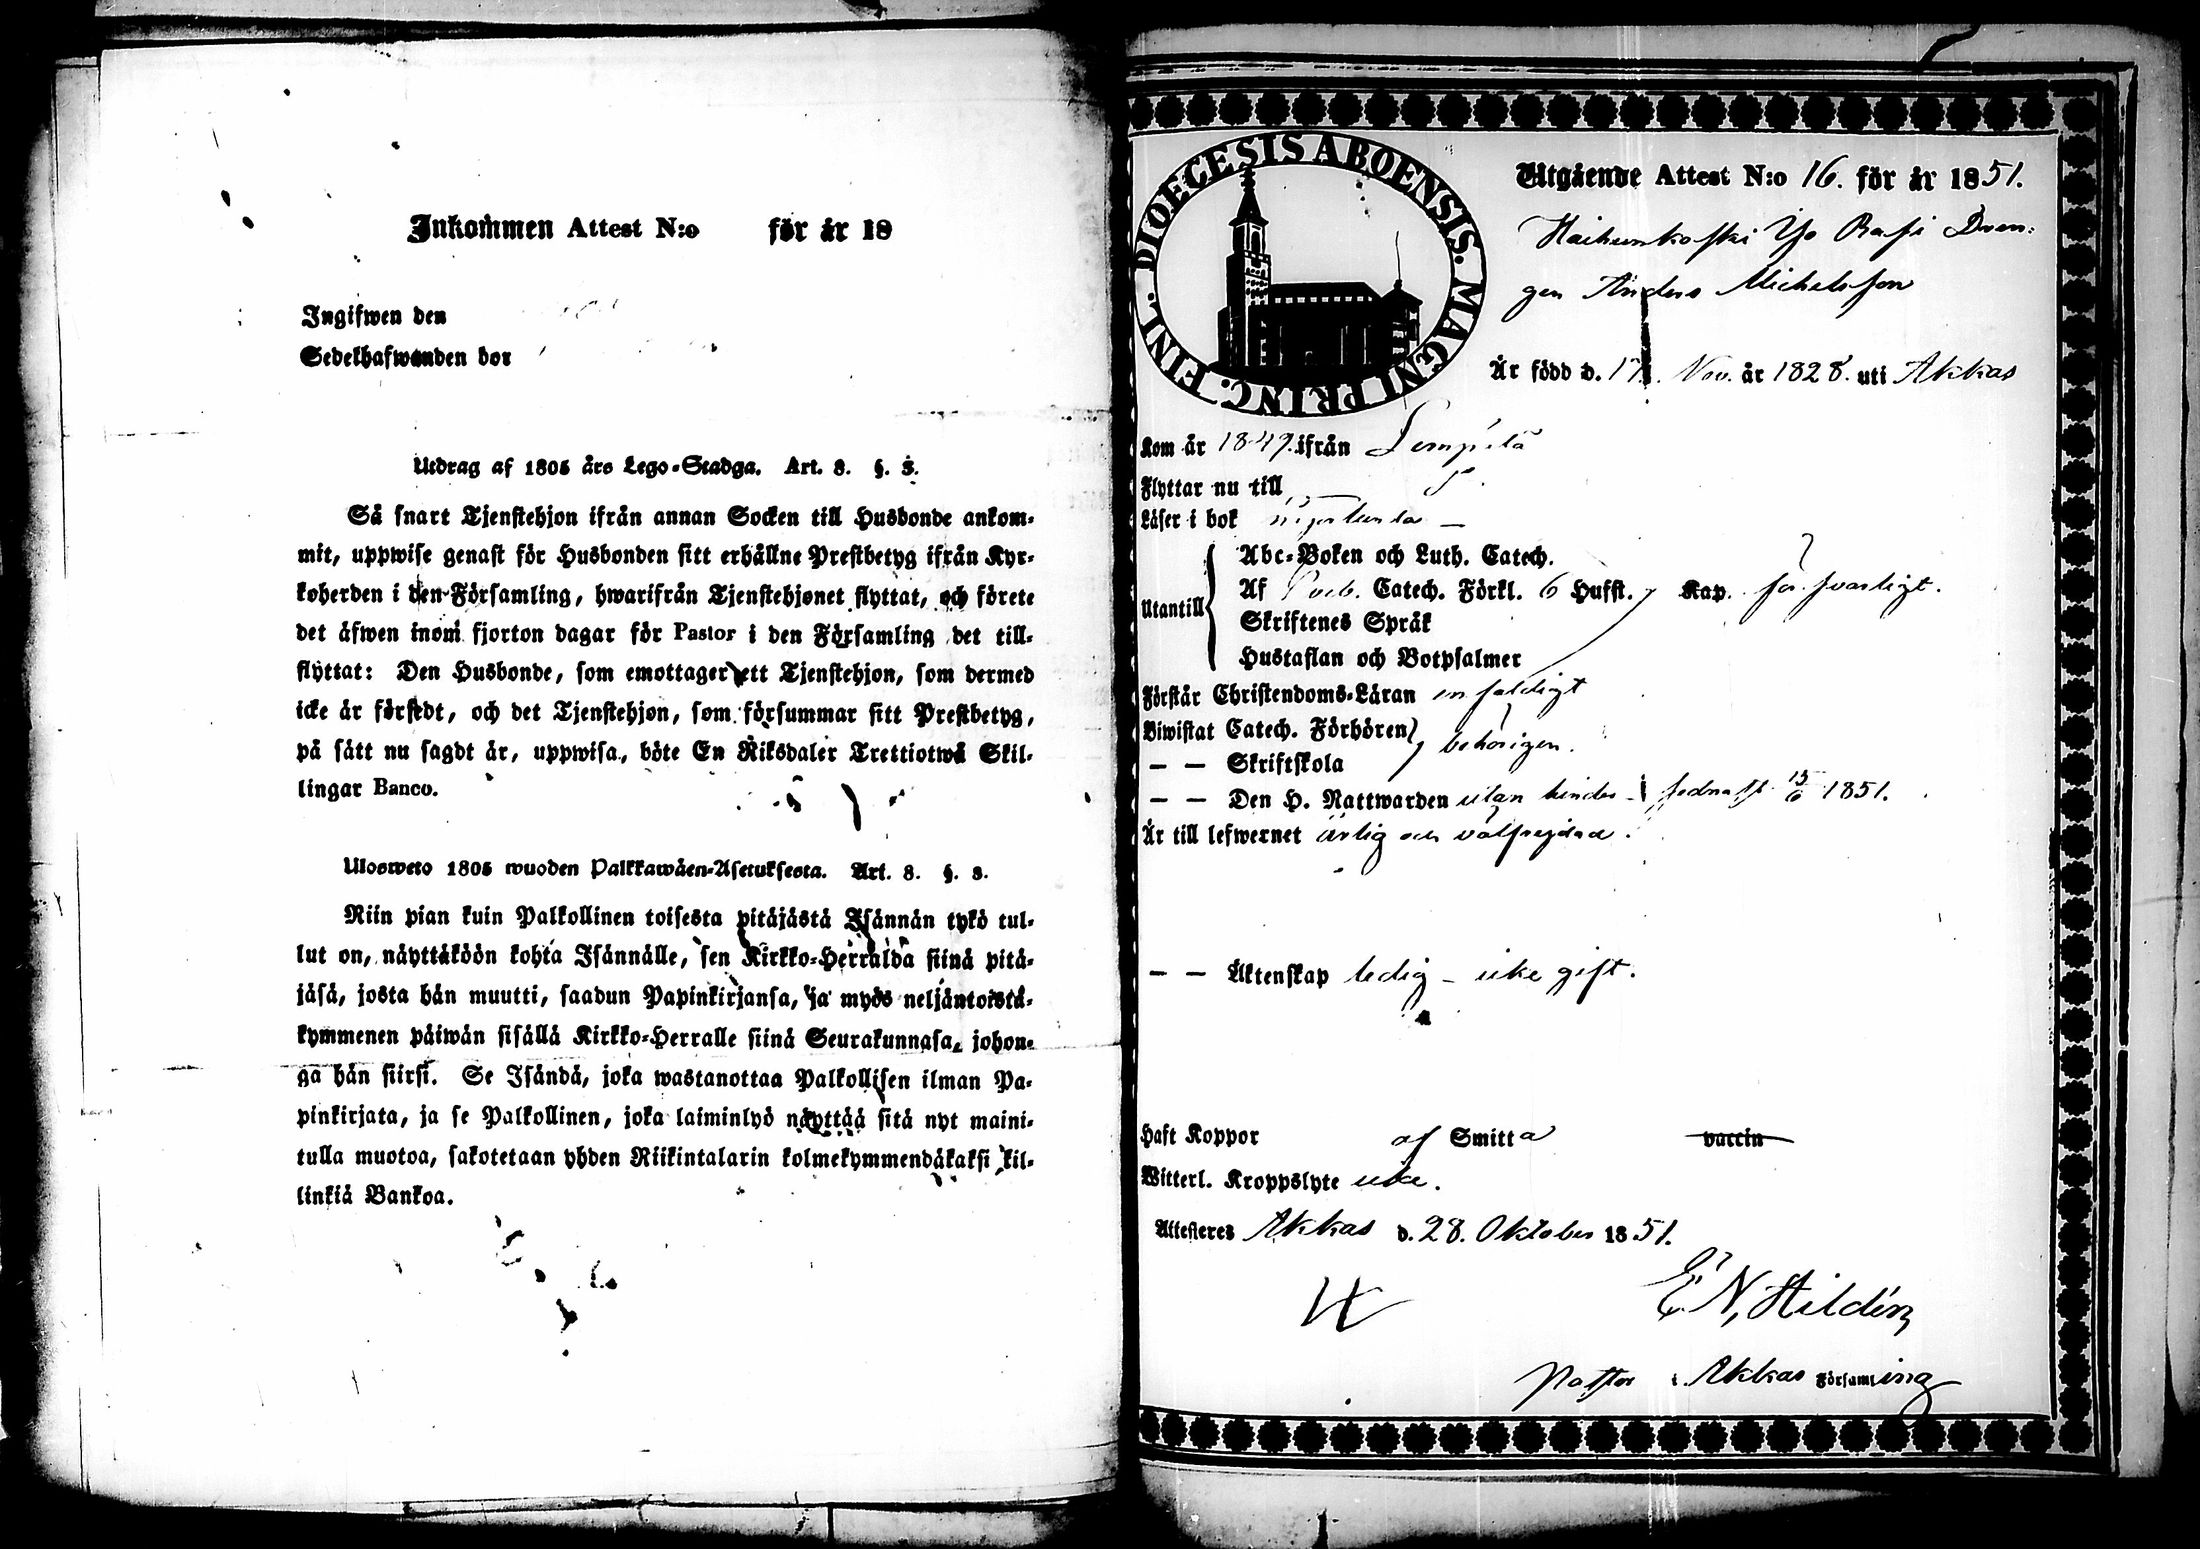 Inkommen Attest N:o för år 18
Ingifwen den
Sedelhafwanden bor
Utdrag af 1805 års Lego-Stadga. Art. 8. §. 3.
Så snart Tjenstehjon ifrån annan Socken till Husbonde ankom-
mit, uppwise genast för Husbonden sitt erhållne Prestbetyg ifrån Kyr-
koherden i den Församling, hwarifrån Tjenstehjonet flyttat, och förete
det äfwen inom fjorton dagar för Pastor i den Församling det till-
flyttat: Den Husbonde, som emottager ett Tjenstehjon, som dermed
icke är försedt, och det Tjenstehjon, som försummar sitt Prestbetyg,
på sätt nu sagdt är, uppwisa, böte En Riksdaler Trettiotwå Skil-
lingar Banco.
Ulosweto 1805 wuoden Palkkawäen-Asetuksesta. Art. 8. §. 3.
Niin pian kuin Palkollinen toisesta pitäjästä Isännän tykö tul-
lut on, näyttäköön kohta Isännälle, sen Kirkko-Herralda siinä pitä-
jäsä, josta hän muutti, saadun Papinkirjansa, ja myös neljäntoistä-
kymmenen päiwän sisällä Kirkko-Herralle siinä Seurakunnasa, johon-
ga hän siirsi. Se Isändä, joka wastanottaa Palkollisen ilman Pa-
pinkirjata, ja se Palkollinen, joka laiminlyö näyttää sitä nyt maini-
tulla muotoa, sakotetaan yhden Riikintalarin kolmekymmendäkaksi kil-
linkiä Bankoa.
DIOECESIS ABOENSIS. MAGNI PRINC. FINL.
Utgående Attest N:o 16. för år 1851.
Haihunkoski Yso Rasi Dren-
gen Anders Michelsson
Är född d. 17. Nov. år 1828. uti Akkas
Kom år 1849. ifrån Lempälä
Flyttar nu till
Läser i bok
Utantill
Abc-Boken och Luth. Catech.
Af Catech. Förkl. 6 Hufst. Kap. försvarligt.
Skriftenes Språk
Hustaflan och Botpsalmer
Förstår Christendoms-Läran enfaldigt
Biwistat Catech. Förhören
behörigen.
— — Skriftskola
— — Den H. Nattwarden utan hinder sednast 15/6 1851.
Är till lefwernet ärlig och välfrejdad.
— — Äktenskap ledig - icke gift.
Haft Koppor af Smitta vaccin
Witterl. Kroppslyte icke.
Attesteres Akkas d. 28. Oktober 1851.
E N, Hildén
Pastor i Akkas Församling